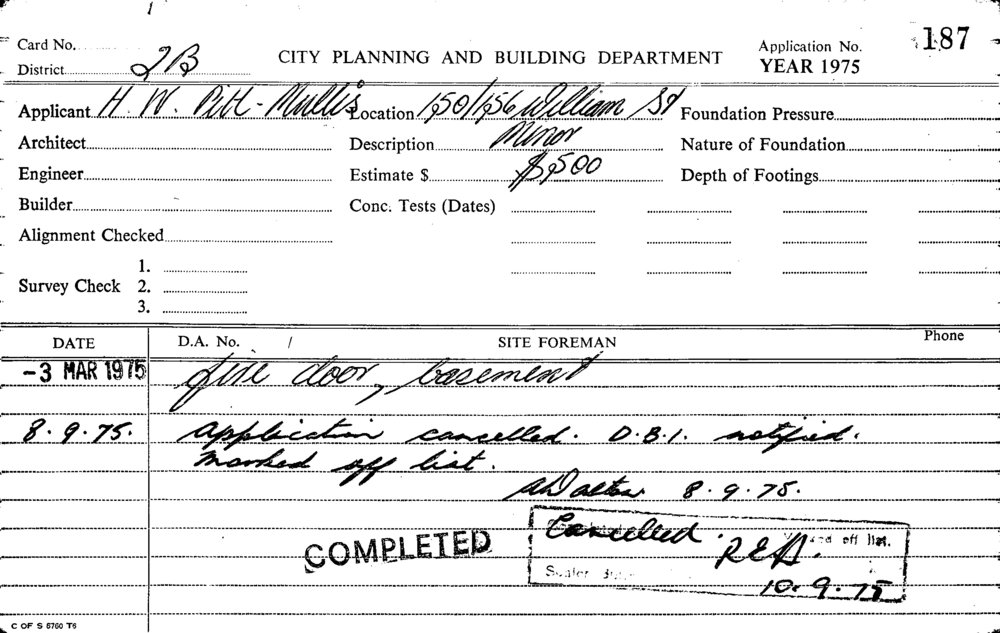 Card No. CITY PLANNING AND BUILDING DEPARTMENT Application No. 187
District 2B YEAR 1975
Applicant H. W. Pitt-Mullis Location 150/156 William St Foundation Pressure
Architect Description Minor Nature of Foundation
Engineer Estimate $ $500 Depth of Footings
Builder Conc. Tests (Dates)
Alignment Checked
1.
Survey Check 2.
3.
DATE D.A. No. / SITE FOREMAN Phone
-3 MAR 1975 fire door, basement
8.9.75. Application cancelled. D.B.I. notified.
marked off list.
8.9.75.
Cancelled. off list.
COMPLETED
10.9.75
C OF S 6760 T6